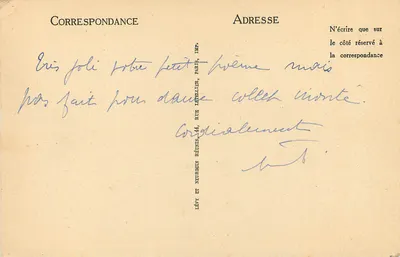 CORRESPONDANCE
ADRESSE
N'écrire que sur
le côté réservé à
la correspondance
Très joli votre petit poème mais
pas fait pour dame collet monté.
Cordialement
LÉVY ET NEURDEIN RÉUNIS, 44, RUE LETELLIER, PARIS, IMP.